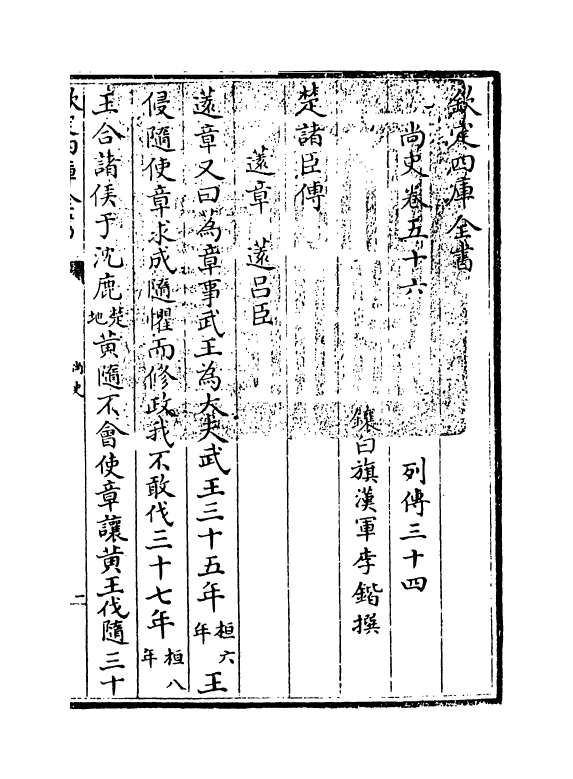 欽定四庫全書
尚史卷五十六　列傳三十四
鑲白旗漢軍李鍇撰
楚諸臣傳
薳章　薳呂臣
薳章又曰蒍章事武王為大夫武王三十五年桓六年王
侵隨使章求成隨懼而修政我不敢伐三十七年桓八年
王合諸侯于沈鹿楚地黃隨不會使章讓黃王伐隨三十
欽定四庫全書
尚史
二